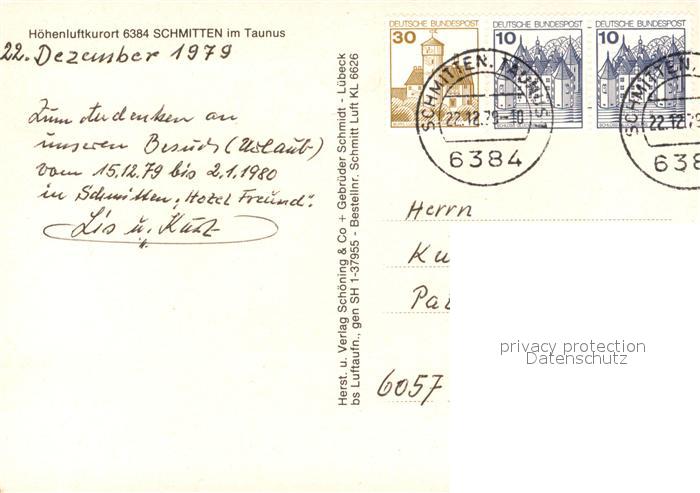 Höhenluftkurort 6384 SCHMITTEN im Taunus
22. Dezember 1979
Zum Andenken an
unseren Besuch (Urlaub)
vom 15.12.79 bis 2.1.1980
in Schmitten „Hotel Freund".
Lis u. Kurt
Herst. u. Verlag Schöning & Co + Gebrüder Schmidt - Lübeck
bs Luftaufn., gen SH 1-37955 - Bestellnr. Schmitt Luft KL 6626
DEUTSCHE BUNDESPOST
30
DEUTSCHE BUNDESPOST
10
DEUTSCHE BUNDESPOST
10
SCHMITTEN, TAUNUS 1
22.12.79-10
6384
SCHMITTEN, TAUN
22.12.79
638
Herrn
Ku
Pa
6057
privacy protection
Datenschutz